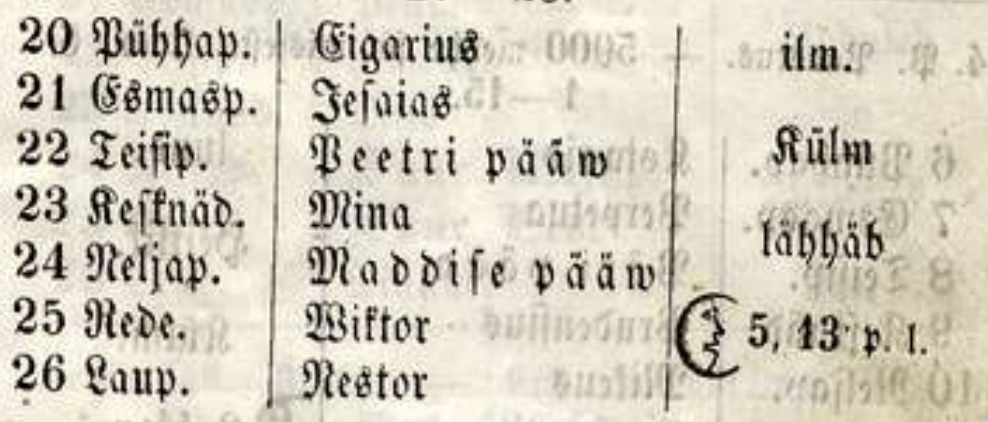 20 Pühhap. Eigarius ilm.
21 Esmasp. Jesaias
22 Teisip. Peetri pääw Külm
23 Kesknäd. Mina
24 Neljap. Maddise pääw lähhäb
25 Rede. Wiktor 5, 13 p. l.
26 Laup. Nestor